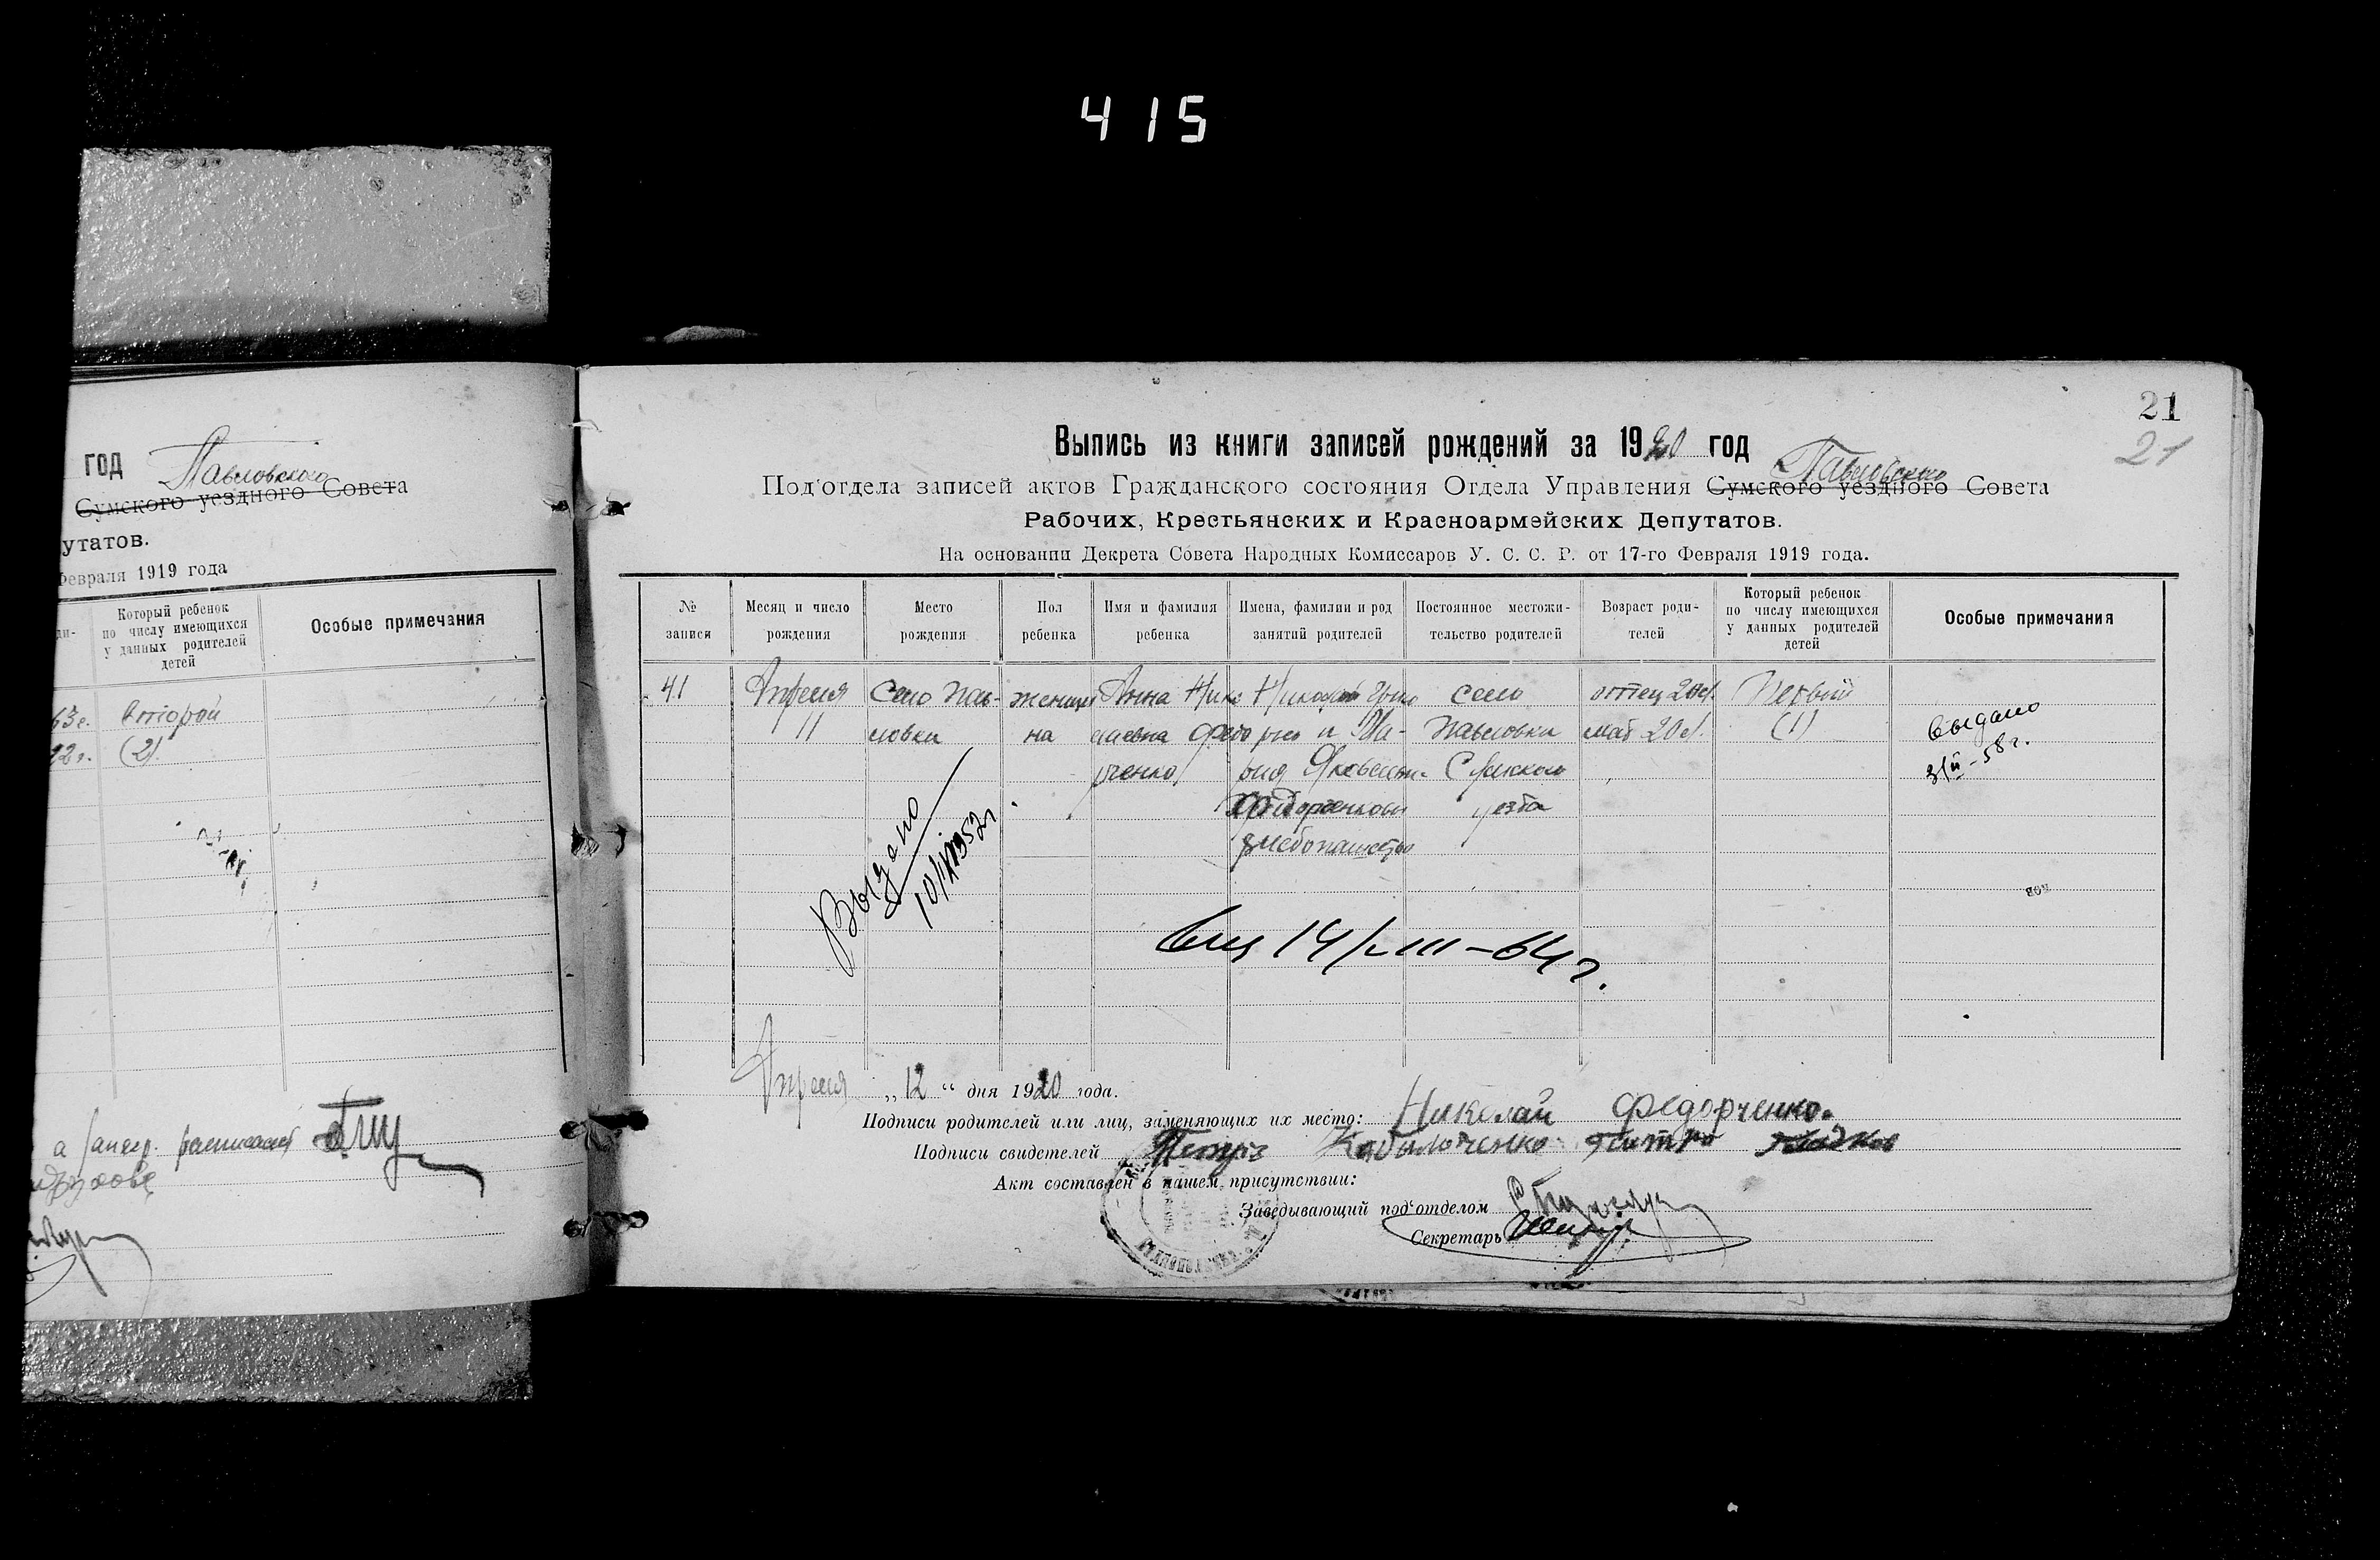 415
год
Павловского
Сумского уездного Совета
утатов.
Февраля 1919 года
ди-
Который ребенок
по числу имеющихся
у данных родителей
детей
Особые примечания
63 г. второй
22 г. (2).
21
21
Выпись из книги записей рождений за 1920 год
Павловского
Под'отдела записей актов Гражданского состояния Отдела Управления Сумского уездного Совета
Рабочих, Крестьянских и Красноармейских Депутатов.
На основании Декрета Совета Народных Комиссаров У. С. С. Р. от 17-го Февраля 1919 года.
№ записи
Месяц и число рождения
Место рождения
Пол ребенка
Имя и фамилия ребенка
Имена, фамилии и род занятий родителей
Постоянное местожи-тельство родителей
Возраст роди-телей
Который ребенок по числу имеющихся у данных родителей детей
Особые примечания
41
Апреля
11
Село Пав-
ловки
женщи
на
Анна Нико
лаевна Федо
рченко
и Ма-
рия Яковлев.
Федорченковы
хлебопашество
село
Павловки
Сумского
уезда
отец 20 л.
мат 20 л.
Первый
(1)
Выдано
58 г.
Выдано
1952 г
14/VIII-64 г.
Апреля „12“ дня 1920 года.
Подписи родителей или лиц, заменяющих их место: Николай Федорченко.
Подписи свидетелей Петр
Акт составлен в нашем присутствии:
Заведывающий под'отделом
Секретарь